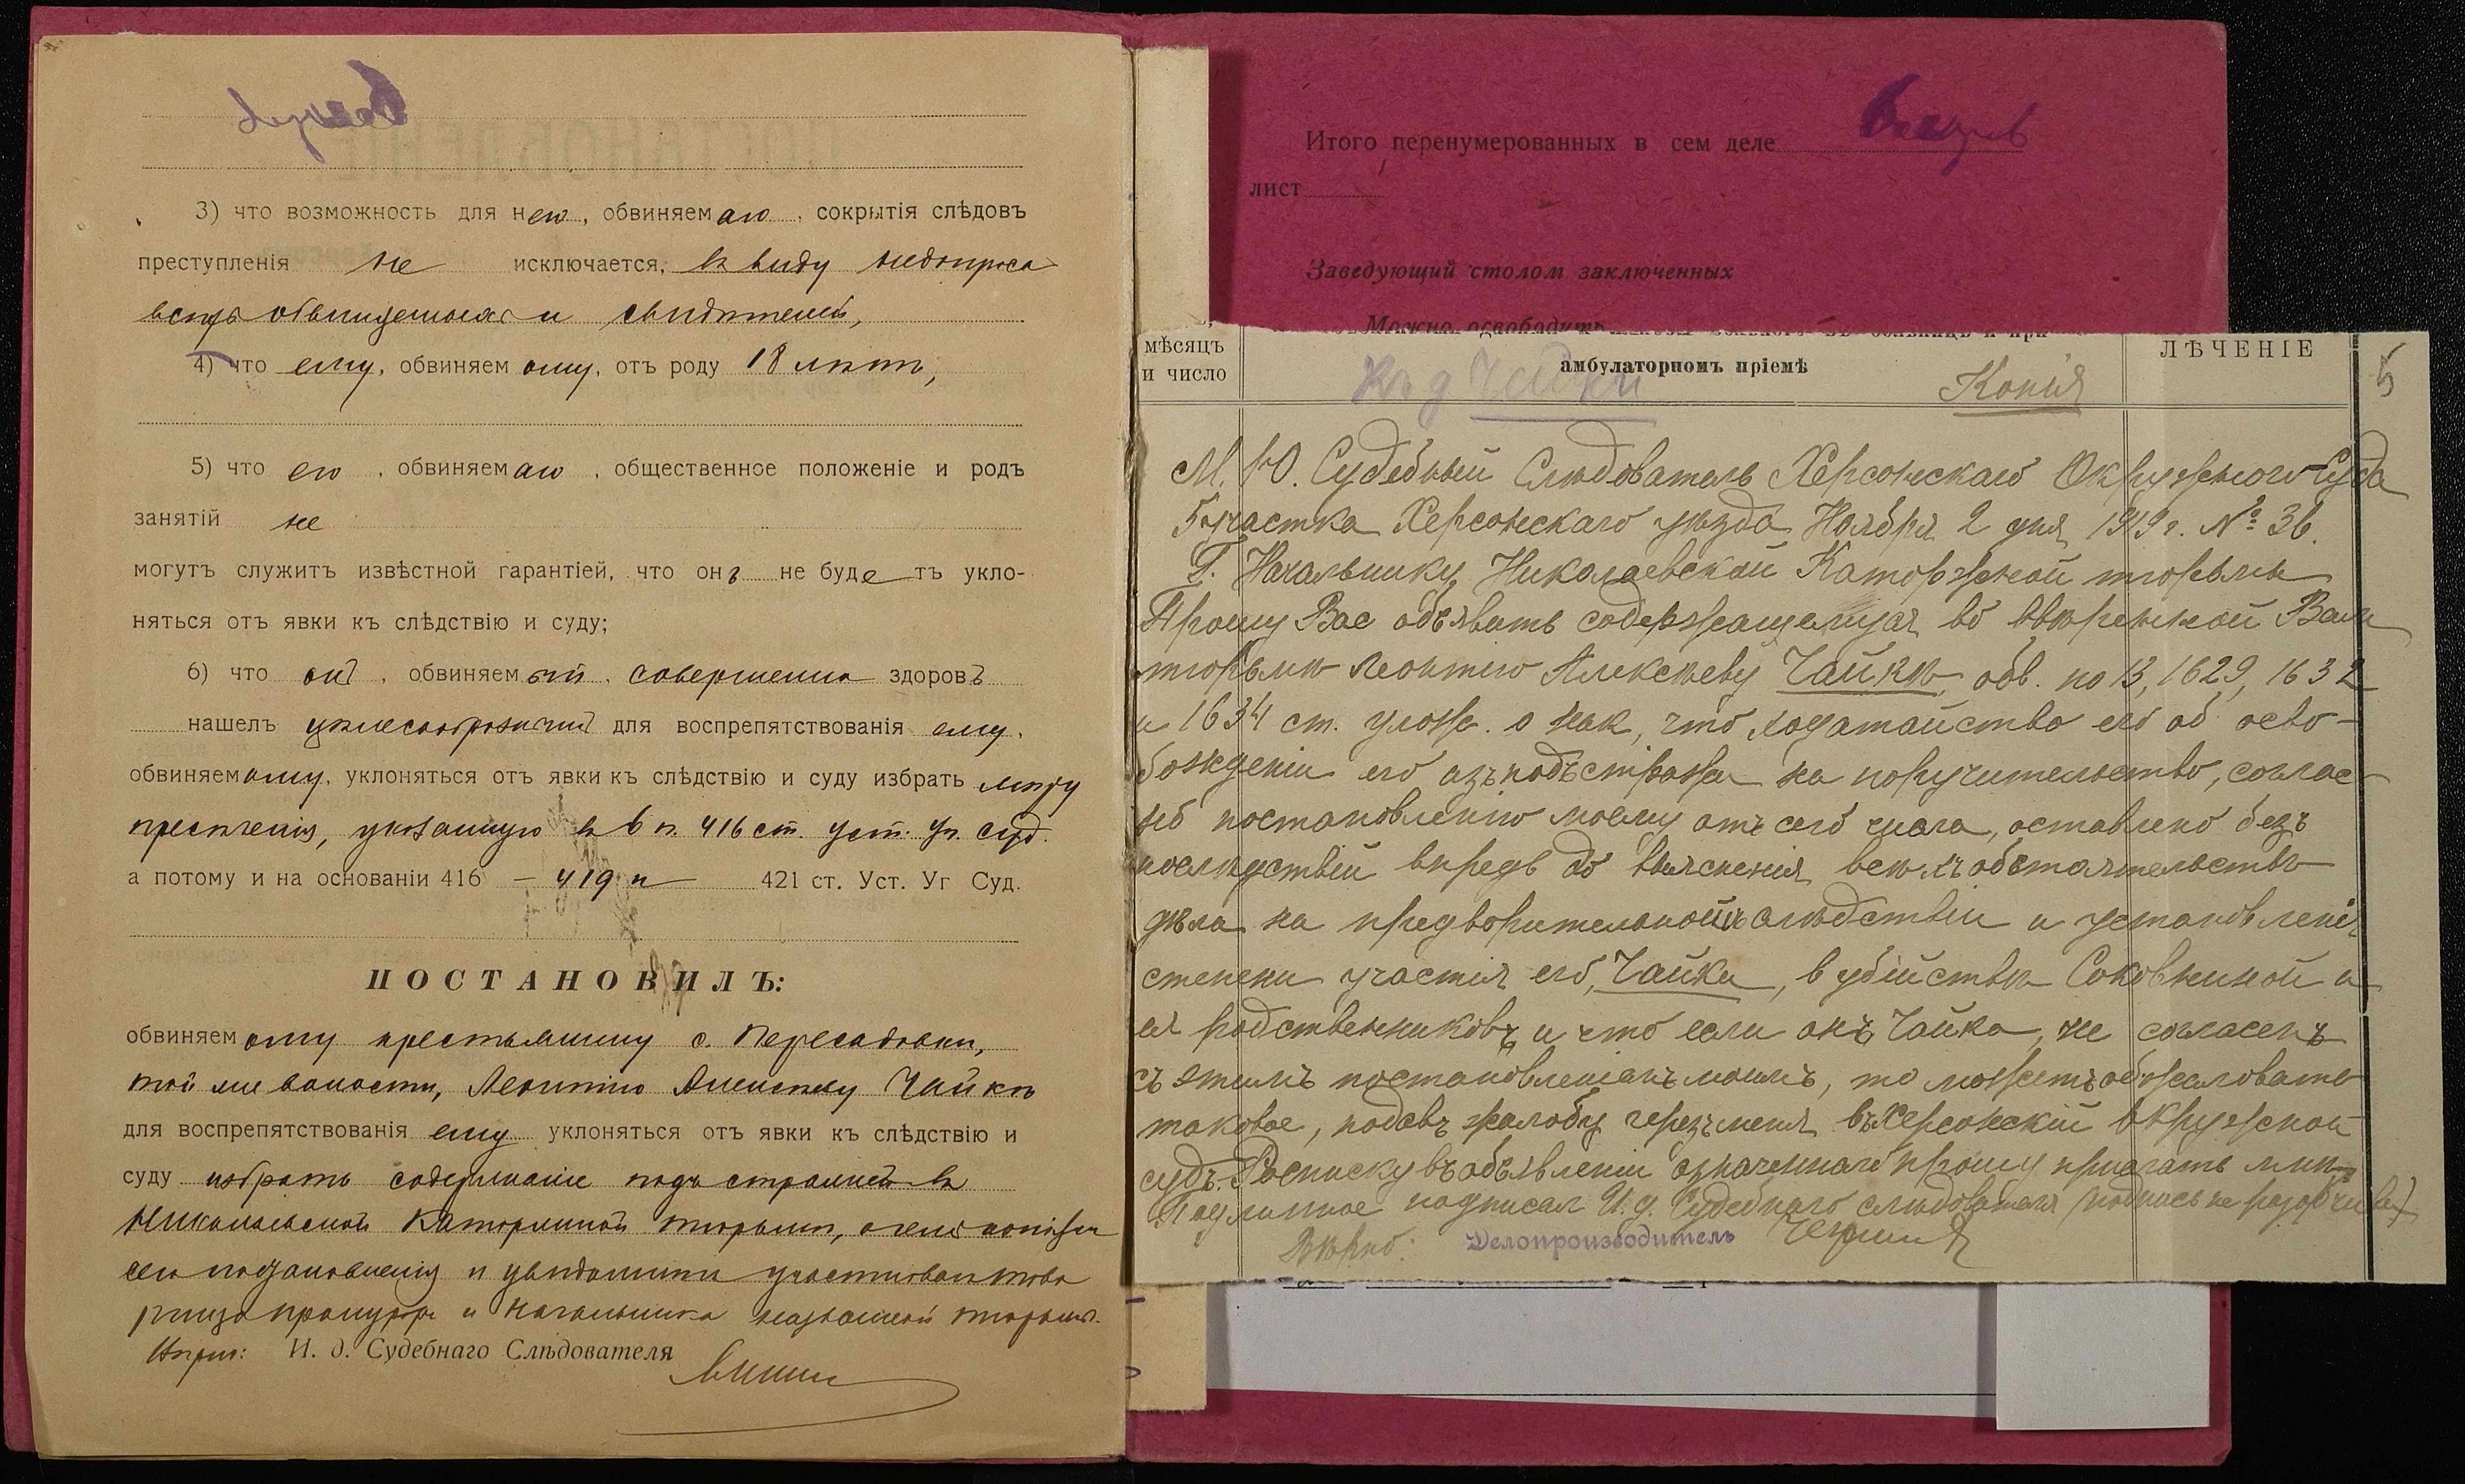 3) что возможность для него, обвиняемаго, сокрытія слѣдовъ
преступленія не исключается, въ виду недопроса
всѣхъ обвиняемыхъ и свидѣтелей,
4) что ему, обвиняемому, отъ роду 18 лѣтъ,
5) что его, обвиняемаго, общественное положеніе и родъ
занятій не
могутъ служитъ извѣстной гарантіей, что онъ не будетъ укло-
няться отъ явки къ слѣдствію и суду;
6) что онъ, обвиняемый, совершенно здоровъ
нашелъ цѣлесообразнымъ для воспрепятствованія ему,
обвиняемому, уклоняться отъ явки къ слѣдствію и суду избрать мѣру
пресѣченія, указанную въ 6 п. 416 ст. Уст. Уг. Суд.
а потому и на основаніи 416 — 419 и 421 ст. Уст. Уг Суд.
ПОСТАНОВИЛЪ:
обвиняемому крестьянину с. Пересадовки,
той же волости, Леонтію Алексѣеву Чайкѣ
для воспрепятствованія ему уклоняться отъ явки къ слѣдствію и
суду избрать содержаніе подъ стражей въ
Николаевской Каторжной тюрьмѣ, о чемъ копіями
сего постановленія и увѣдомить участковаго това
рища прокурора и Начальника названной тюрьмы.
И. д. Судебнаго Слѣдователя
Итого перенумерованных в сем деле
лист
Заведующий столом заключенных
Можно освободить
мѣсяцъ
и число
амбулаторномъ пріемѣ
ЛѢЧЕНІЕ
5
Къ д Чайки
Копія
М. Ю. Судебный Слѣдователь Херсонскаго Окружного Суда
5 участка Херсонскаго уѣзда Ноября 2 дня 1919 г. № 36.
Г. Начальнику Николаевской Каторжной тюрьмы
Прошу Вас объявить содержащемуся во ввѣренной Вам
тюрьмѣ Леонтію Алексѣеву Чайкѣ, обв. по 13, 1629, 1632
и 1634 ст. улож. о нак, что ходатайство его об осво-
божденіи его изъ подъ стражи на поручительство, соглас-
но постановленію моему отъ сего числа, оставлено безъ
послѣдствій впредь до выясненія всѣхъ обстоятельствъ
дѣла на предворительномъ слѣдствіи и установленія
степени участія его, Чайки, в убійствѣ Соковниной и
ея родственниковъ и что если онъ Чайка, не согласенъ
съ этимъ постановленіемъ моимъ, то можетъ обжаловать
таковое, подавъ жалобу черезъ меня въ Херсонскій Окружной
судъ. Росписку въ объявленіи означеннаго прошу прислать мнѣ
Подлинное подписал И. д. Судебнаго слѣдователя (подпись не разборчива)
Вѣрно: Делопроизводитель